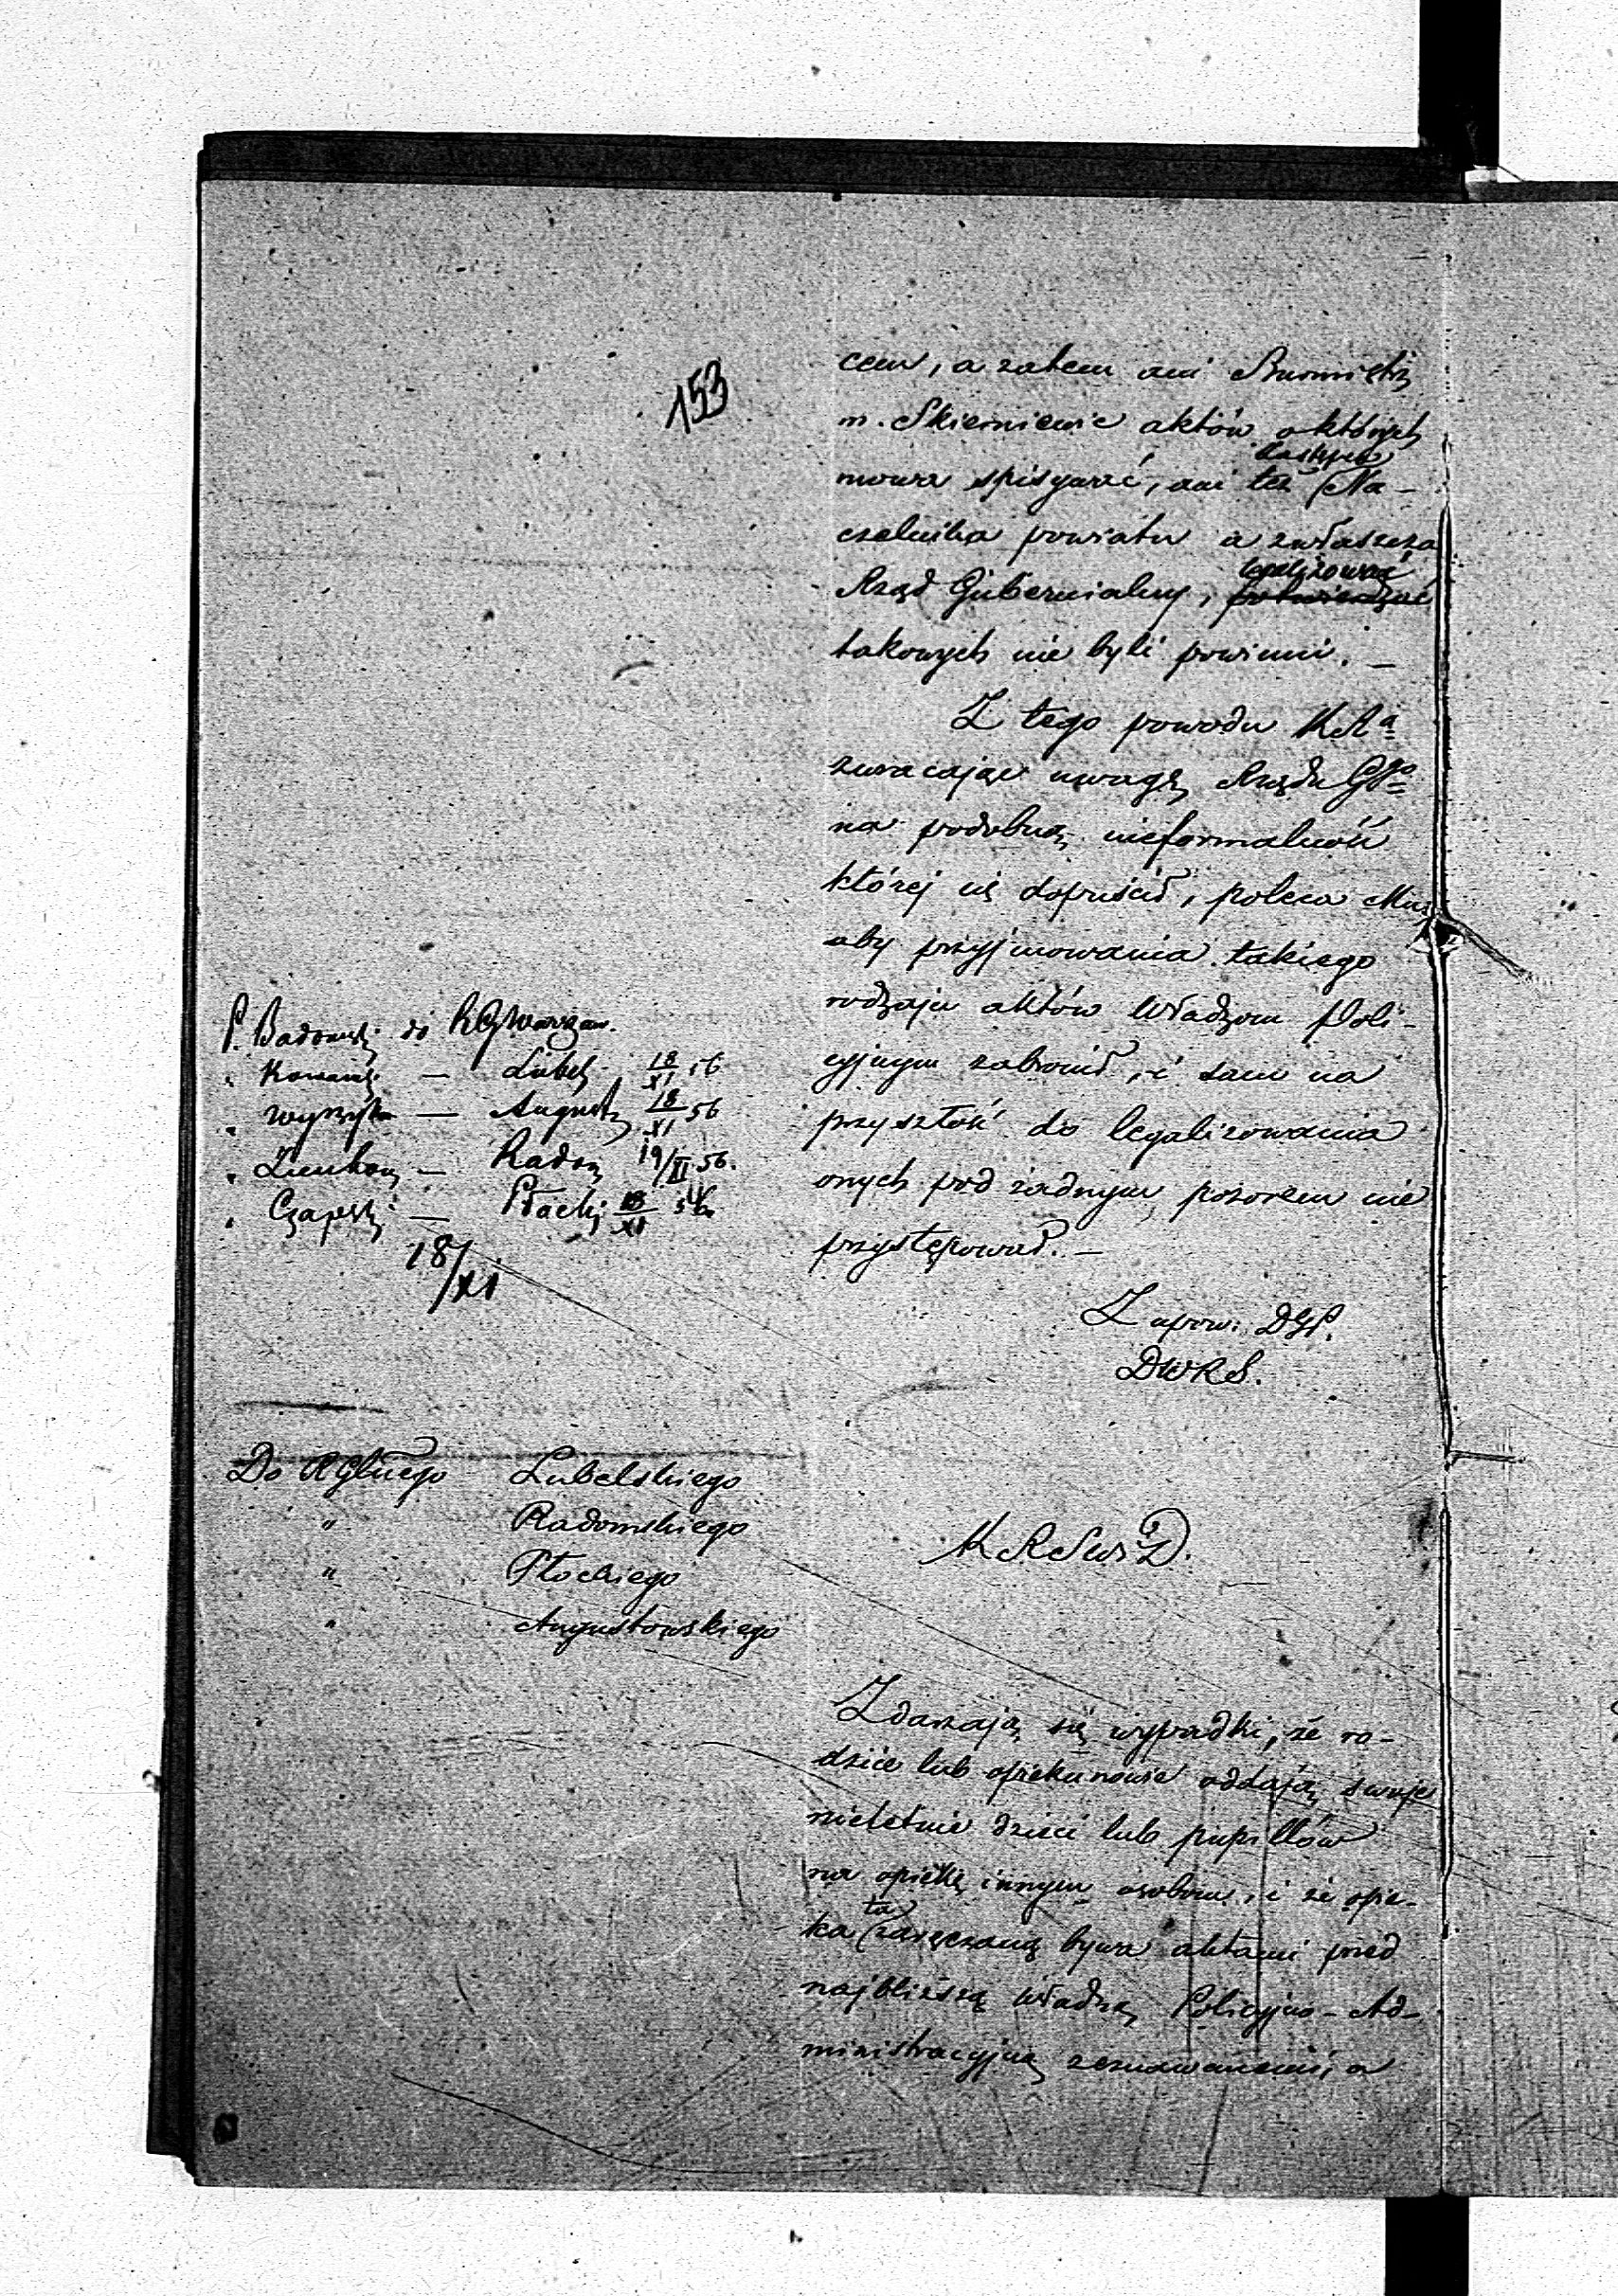 153
cem, a zatem ani Burmistrz
m. Skierniewic aktów o których
mowa spisywać, ani też Zastępca Na-
czelnika powiatu a zwłaszcza
Rząd Gubernialny, legalizować potwierdzać
takowych nie byli powinni. —
Z tego powodu KRa
zwracając uwagę Rządu Ggo
na podobną nieformalność
której się dopuścił, poleca Mu,
aby przyjmowania takiego
rodzaju aktów Władzom Poli-
cyjnym zabronił, i sam na
przyszłość do legalizowania
onych pod żadnym pozorem nie
przystępował. —
Z upow. DGP.
DWRS.
P. Badowski do RGWarszaw.
" — Lubels. 18/XI 56
" — August 18/XI 56
" — Radom 19/XI 56.
" Czapski — Płocki 18/XI 56
18/XI
Do RGlnego Lubelskiego
" Radomskiego
" Płockiego
" Augustowskiego
KRSWiD.
Zdarzają się wypadki, że ro-
dzice lub opiekunowie oddają swoje
nieletnie dzieci lub pupillów
na opiekę innym osobom, i że opie-
ka ta zaręczaną bywa aktami przed
najbliższą władzą Policyjno-Ad-
ministracyjną zeznawanemi, a